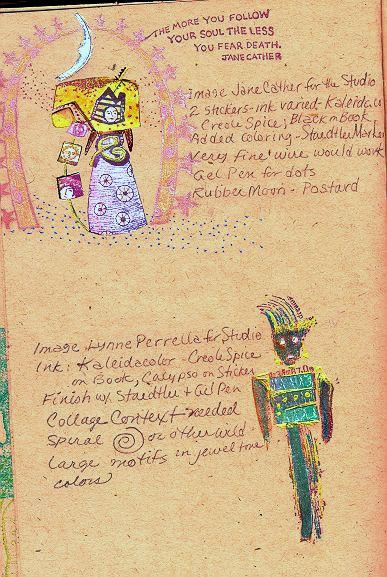 THE MORE YOU FOLLOW
YOUR SOUL THE LESS
YOU FEAR DEATH.
JANE CATHER
Image Jane Cather for the Studio
2 stickers-ink varied-Kaleidacolor
Creole Spice; Black on Book
Added Coloring-Staedtler Marker
Very fine wire would work
Gel Pen for dots
Rubber Moon - Postard
Image Lynne Perrella for Studio
Ink: Kaleidacolor-Creole Spice
on Book, Calypso on Sticker
Finish w. Staedtler + Gel Pen
Collage Context needed
Spiral or other wild
large motifs in jewel tone
colors